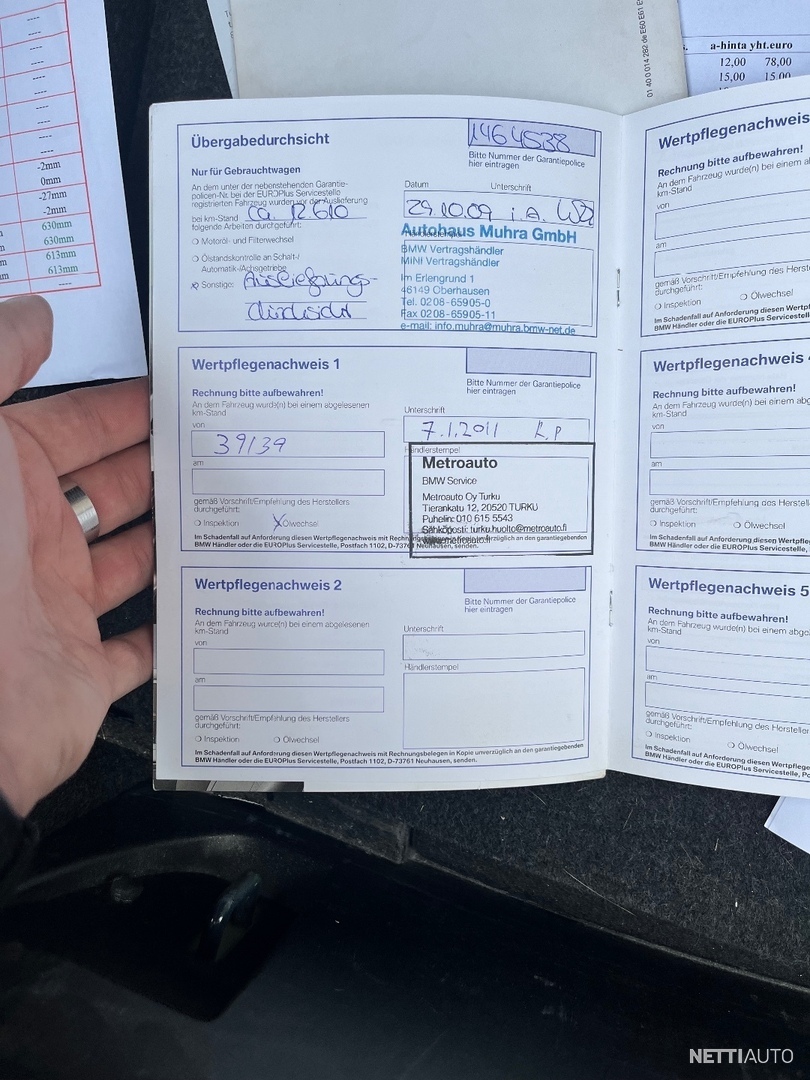 ----
----
----
----
----
----
----
-2mm
0mm
-27mm
-2mm
630mm
630mm
613mm
613mm
----
01 40 0 014 282 de E60 E61
a-hinta yht.euro
12,00 78,00
15,00 15,00
Übergabedurchsicht
1464538
Bitte Nummer der Garantiepolice
hier eintragen
Nur für Gebrauchtwagen
An dem unter der nebenstehenden Garantie-
policen-Nr. bei der EUROPlus Servicestelle
registrierten Fahrzeug wurden vor der Auslieferung
bei km-Stand ca. 12 610
folgende Arbeiten durchgeführt:
Motoröl- und Filterwechsel
Ölstandskontrolle an Schalt-/
Automatik-/Achsgetriebe
Sonstige: Auslieferungs-
durchsicht
Datum Unterschrift
29.10.09 i.A.
Autohaus Muhra GmbH
BMW Vertragshändler
MINI Vertragshändler
Im Erlengrund 1
46149 Oberhausen
Tel. 0208-65905-0
Fax 0208-65905-11
e-mail: info.muhra@muhra.bmw-net.de
Wertpflegenachweis 1
Bitte Nummer der Garantiepolice
hier eintragen
Rechnung bitte aufbewahren!
An dem Fahrzeug wurde(n) bei einem abgelesenen
km-Stand
von
39139
am
gemäß Vorschrift/Empfehlung des Herstellers
durchgeführt:
Inspektion Ölwechsel
Unterschrift
7.1.2011 K.P
Händlerstempel
Metroauto
BMW Service
Metroauto Oy Turku
Tierankatu 12, 20520 TURKU
Puhelin: 010 615 5543
Sähköposti: turku.huolto@metroauto.fi
www.metroauto.fi
Im Schadenfall auf Anforderung diesen Wertpflegenachweis mit Rechnungsbelegen in Kopie unverzüglich an den garantiegebenden
BMW Händler oder die EUROPlus Servicestelle, Postfach 1102, D-73761 Neuhausen, senden.
Wertpflegenachweis 2
Bitte Nummer der Garantiepolice
hier eintragen
Rechnung bitte aufbewahren!
An dem Fahrzeug wurde(n) bei einem abgelesenen
km-Stand
von
am
gemäß Vorschrift/Empfehlung des Herstellers
durchgeführt:
Inspektion Ölwechsel
Unterschrift
Händlerstempel
Im Schadenfall auf Anforderung diesen Wertpflegenachweis mit Rechnungsbelegen in Kopie unverzüglich an den garantiegebenden
BMW Händler oder die EUROPlus Servicestelle, Postfach 1102, D-73761 Neuhausen, senden.
Wertpflegenachweis
Rechnung bitte aufbewahren!
An dem Fahrzeug wurde(n) bei einem
km-Stand
von
am
gemäß Vorschrift/Empfehlung des Herstellers
durchgeführt:
Inspektion Ölwechsel
Im Schadenfall auf Anforderung diesen
BMW Händler oder die EUROPlus Servicestelle
Wertpflegenachweis 4
Rechnung bitte aufbewahren!
An dem Fahrzeug wurde(n) bei einem
km-Stand
von
am
gemäß Vorschrift/Empfehlung des Herstellers
durchgeführt:
Inspektion Ölwechsel
Im Schadenfall auf Anforderung diesen
BMW Händler oder die EUROPlus Servicestelle,
Wertpflegenachweis 5
Rechnung bitte aufbewahren!
An dem Fahrzeug wurde(n) bei einem
km-Stand
von
am
gemäß Vorschrift/Empfehlung des Hersteller
durchgeführt:
Inspektion Ölwechsel
Im Schadenfall auf Anforderung diesen
BMW Händler oder die EUROPlus Servicestelle,
NETTIAUTO